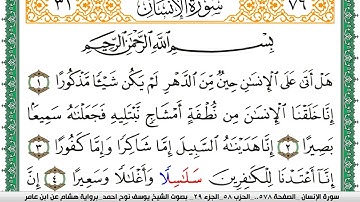 ٣١ سُورَةُ الإِنسَانِ ٧٦
بِسْمِ اللَّهِ الرَّحْمَٰنِ الرَّحِيمِ
هَلْ أَتَىٰ عَلَى الْإِنسَٰنِ حِينٌ مِّنَ الدَّهْرِ لَمْ يَكُن شَيْـًٔا مَّذْكُورًا ١
إِنَّا خَلَقْنَا الْإِنسَٰنَ مِن نُّطْفَةٍ أَمْشَاجٍ نَّبْتَلِيهِ فَجَعَلْنَٰهُ سَمِيعًۢا
بَصِيرًا ٢ إِنَّا هَدَيْنَٰهُ السَّبِيلَ إِمَّا شَاكِرًا وَإِمَّا كَفُورًا ٣
إِنَّا أَعْتَدْنَا لِلْكَٰفِرِينَ سَلَٰسِلًا وَأَغْلَٰلًا وَسَعِيرًا ٤ إِنَّ
سورة الإنسان _الصفحة ٥٧٨_ الحزب ٥٨_ الجزء ٢٩_ بصوت الشيخ يوسف نوح احمد_ برواية هشام عن ابن عامر